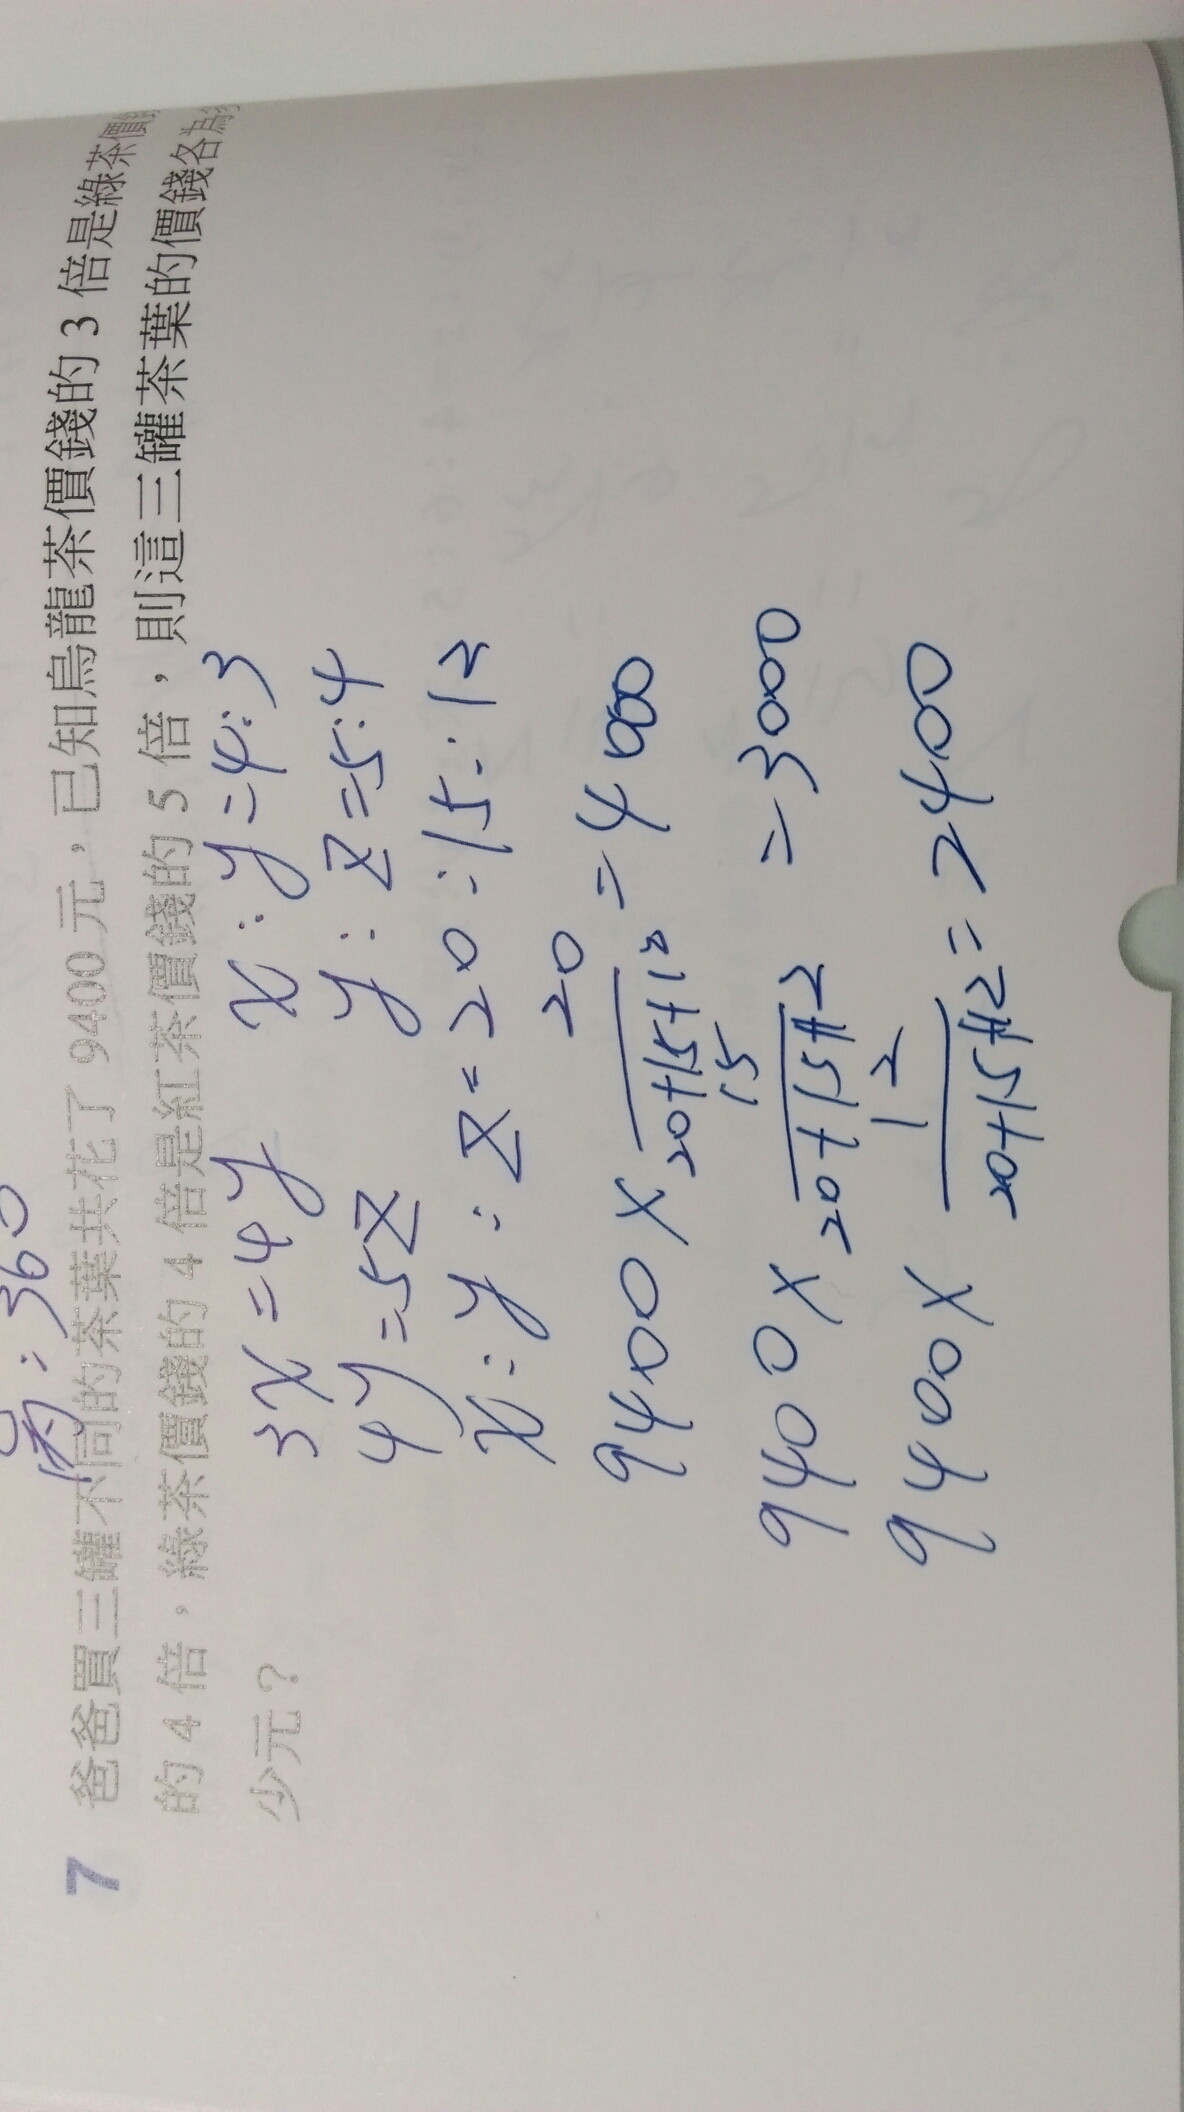 7 爸爸買三罐不同的茶葉共花了 9400 元，已知烏龍茶價錢的 3 倍是綠茶價
的 4 倍，綠茶價錢的 4 倍是紅茶價錢的 5 倍，則這三罐茶葉的價錢各為
少元？
3x=4y x:y=4:3
4y=5z y:z=5:4
x:y:z=20:15:12
9400×20/20+15+12=4000
9400×15/20+15+12=3000
9400×12/20+15+12=2400